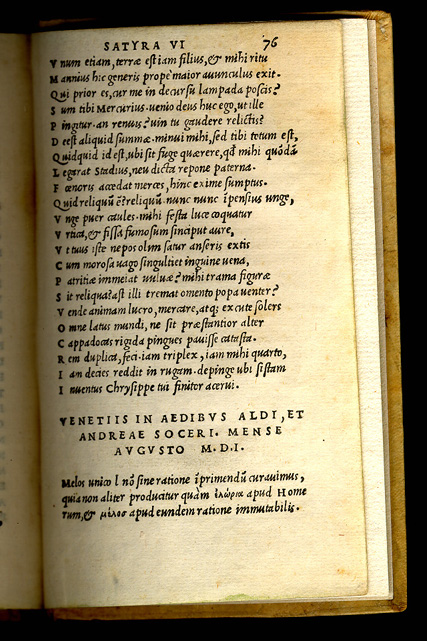 SATYRA VI 76
V num etiam, terræ est iam filius, & mihi ritu
M annius hic generis prope maior auunculus exit.
Q ui prior es, cur me in decursu lampada poscis?
S um tibi Mercurius. uenio deus huc ego, ut ille
P ingitur. an renuis? uin tu gaudere relictis?
D eest aliquid summæ. minui mihi, sed tibi totum est,
Quidquid id est, ubi sit fuge quærere, qd mihi quōdā
L egarat Stadius, neu dicta repone paterna.
F œnoris accedat merces, hinc exime sumptus.
Quid reliquū ē? reliquū. nunc nunc ipensius unge,
V nge puer caules. mihi festa luce coquatur
V rtica, & fissa fumosum sinciput aure,
V t tuus iste nepos olim satur anseris extis
C um morosa uago singultiet inguine uena,
P atritiæ immeiat uuluæ? mihi trama figuræ
S it reliqua? ast illi tremat omento popa uenter?
V ende animam lucro, mercare, atq; excute solers
O mne latus mundi, ne sit præstantior alter
C appadocas rigida pingues pauisse catasta.
R em duplica, feci. iam triplex, iam mihi quarto,
I am decies reddit in rugam. depinge ubi sistam
I nuentus Chrysippe tui finitor acerui.
VENETIIS IN AEDIBVS ALDI, ET
ANDREAE SOCERI. MENSE
AVGVSTO M.D.I.
Melos unico l nō sine ratione īprimendū curauimus,
quia non aliter producitur quàm ἑλώρια apud Home
rum, & μέλος apud eundem ratione immutabilis.